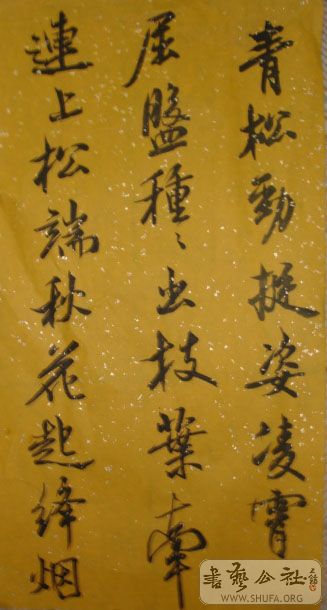 青松勁挺姿凌霄
屈盤種々出枝葉牽
連上松端秋花起絳烟
書藝公社
WWW.SHUFA.ORG